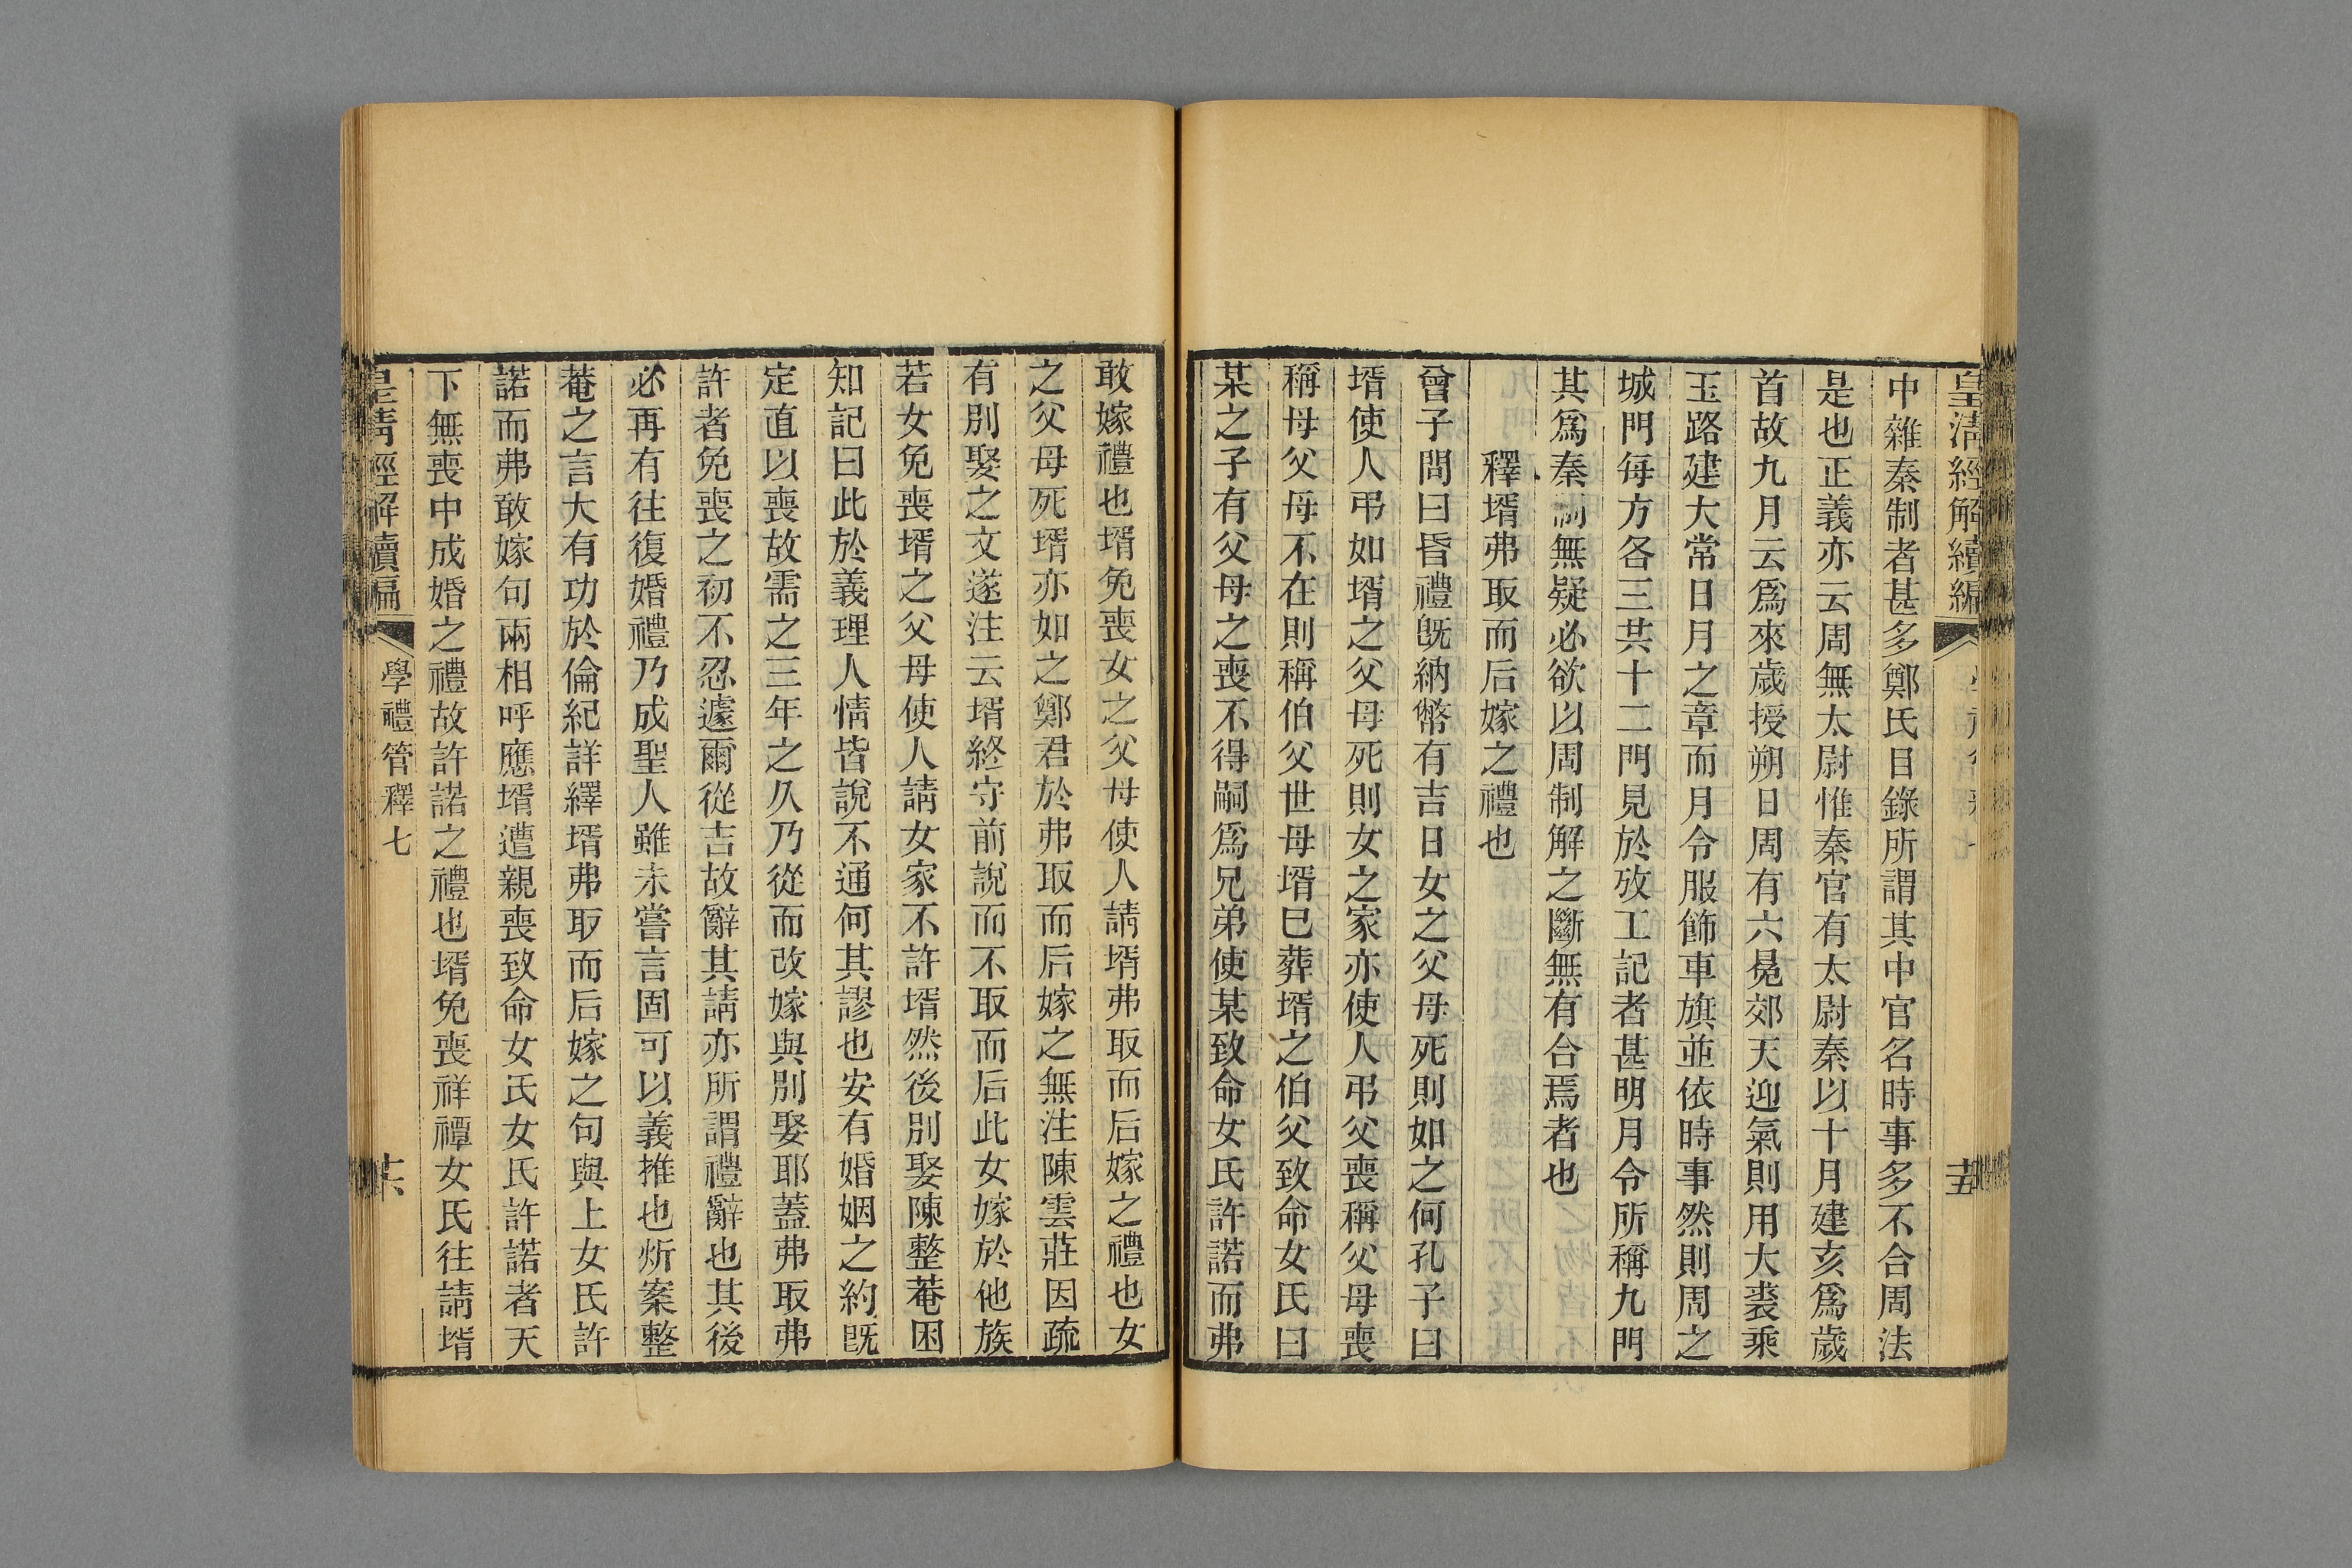 皇清經解續編
中雜秦制者甚多鄭氏目錄所謂其中官名時事多不合周法
是也正義亦云周無太尉惟秦官有太尉秦以十月建亥爲歲
首故九月云爲來歲授朔日周有六冕郊天迎氣則用大裘乘
玉路建大常日月之章而月令服飾車旗並依時事然則周之
城門每方各三共十二門見於攷工記者甚明月令所稱九門
其爲秦制無疑必欲以周制解之斷無有合焉者也
釋壻弗取而后嫁之禮也
曾子問曰昏禮旣納幣有吉日女之父母死則如之何孔子曰
壻使人弔如壻之父母死則女之家亦使人弔父喪稱父母喪
稱母父母不在則稱伯父世母壻巳葬壻之伯父致命女氏曰
某之子有父母之喪不得嗣爲兄弟使某致命女氏許諾而弗
敢嫁禮也壻免喪女之父母使人請壻弗取而后嫁之禮也女
之父母死壻亦如之鄭君於弗取而后嫁之無注陳雲莊因疏
有別娶之文遂注云壻終守前說而不取而后此女嫁於他族
若女免喪壻之父母使人請女家不許壻然後別娶陳整菴困
知記曰此於義理人情皆說不通何其謬也安有婚姻之約旣
定直以喪故需之三年之久乃從而改嫁與別娶耶蓋弗取弗
許者免喪之初不忍遽爾從吉故辭其請亦所謂禮辭也其後
必再有往復婚禮乃成聖人雖未嘗言固可以義推也炘案整
菴之言大有功於倫紀詳繹壻弗取而后嫁之句與上女氏許
諾而弗敢嫁句兩相呼應壻遭親喪致命女氏女氏許諾者天
下無喪中成婚之禮故許諾之禮也壻免喪祥禫女氏往請壻
皇清經解續編
學禮管釋七